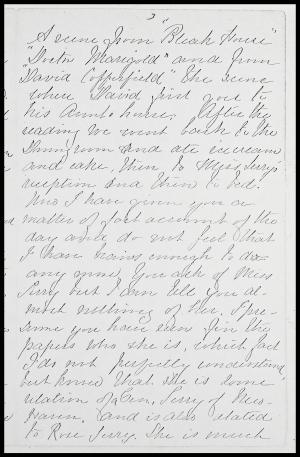 3
A scene from "Bleak House"
"Doctor Marigold" and from
"David Copperfield" the scene
where David first goes to
his Aunt's house. After the
reading we went back to the
Dining room and ate ice cream
and cake, then to Miss Terry's
reception and then to bed.
Thus I have given you a
matter of fact account of the
day and do not feel that
I have brains enough to do
any more. You ask of Miss
Terry but I can tell you al-
most nothing of her. I pre-
sume you have seen in the
papers who she is, which fact
I do not perfectly understand
but know that she is some
relation of Gen. Terry of New-
Haven, and is also related
to Rose Terry. She is much